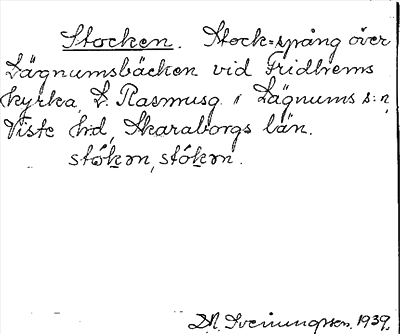 Stocken. Stock=spång över
Lägnumsbäcken vid Fridhems
kyrka, L. Rasmusg. i Lägnums s:n,
Viste hd, Skaraborgs län.
stókən, stókən.
D.N. Sveinungsen. 1939.